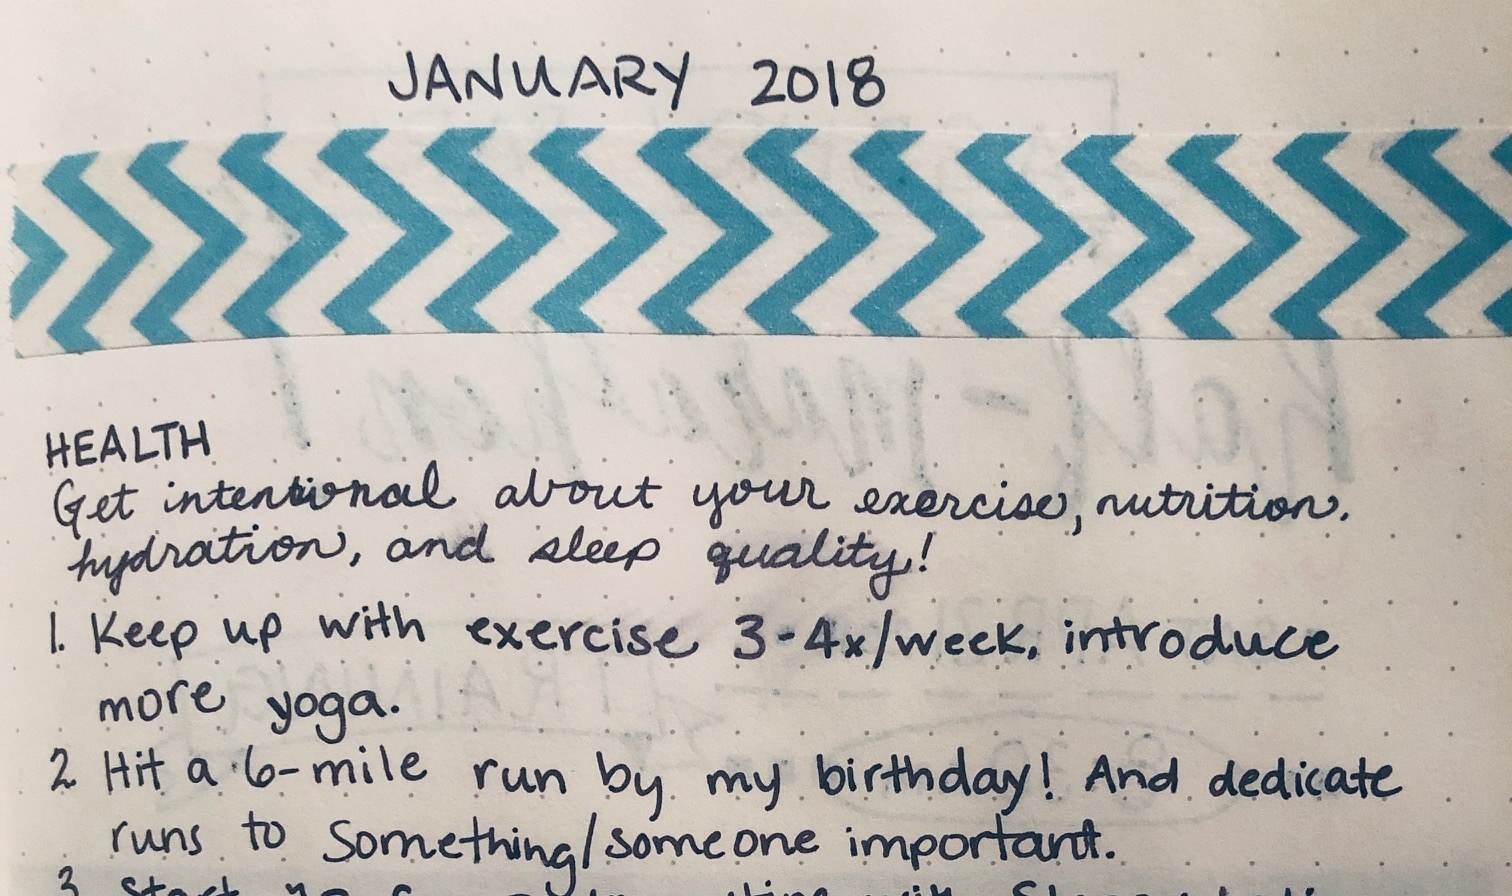 JANUARY 2018
HEALTH
Get intentional about your exercise, nutrition,
hydration, and sleep quality!
1. Keep up with exercise 3-4x/week, introduce
more yoga.
2 Hit a 6-mile run by my birthday! And dedicate
runs to Something/someone important.
3